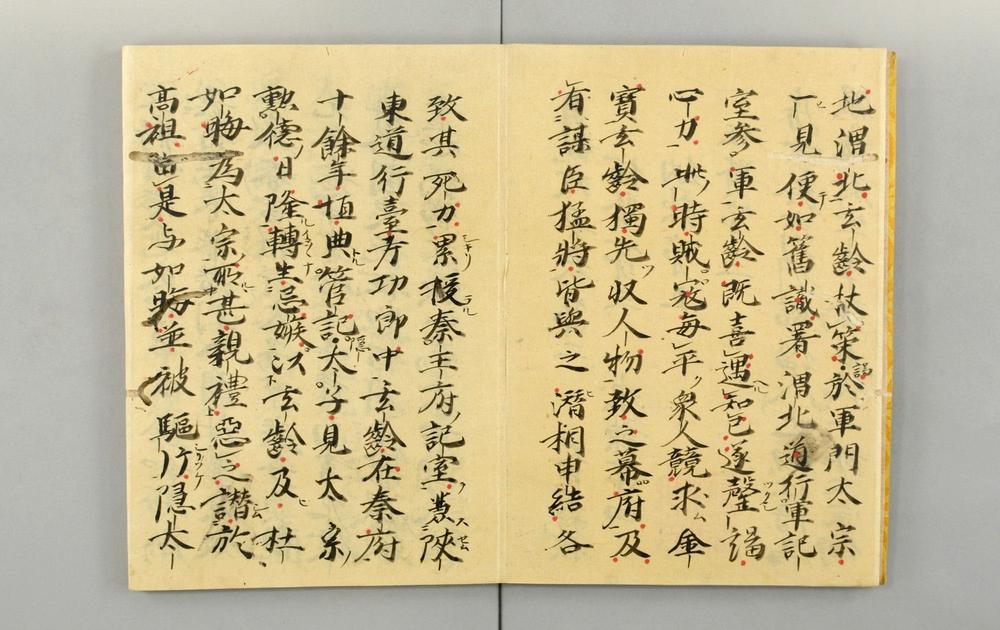 北渭北玄齡杖策於軍門太宗
一見便如舊識署渭北道行軍記
室參軍玄齡既喜遇知己遂罄竭
心力此時賊寇每平衆人競求金
寶玄齡獨先収人物致之幕府及
有謀臣猛將皆與之潛相申結各
致其死力累授秦王府記室兼陝
東道行臺考功郎中玄齡在秦府
十餘年恒典管記太子見太宗
勲德日隆轉生忌嫉以玄齡及杜
如晦為太宗所甚親禮惡之譖於
髙祖由是与如晦並被驅斥隱太